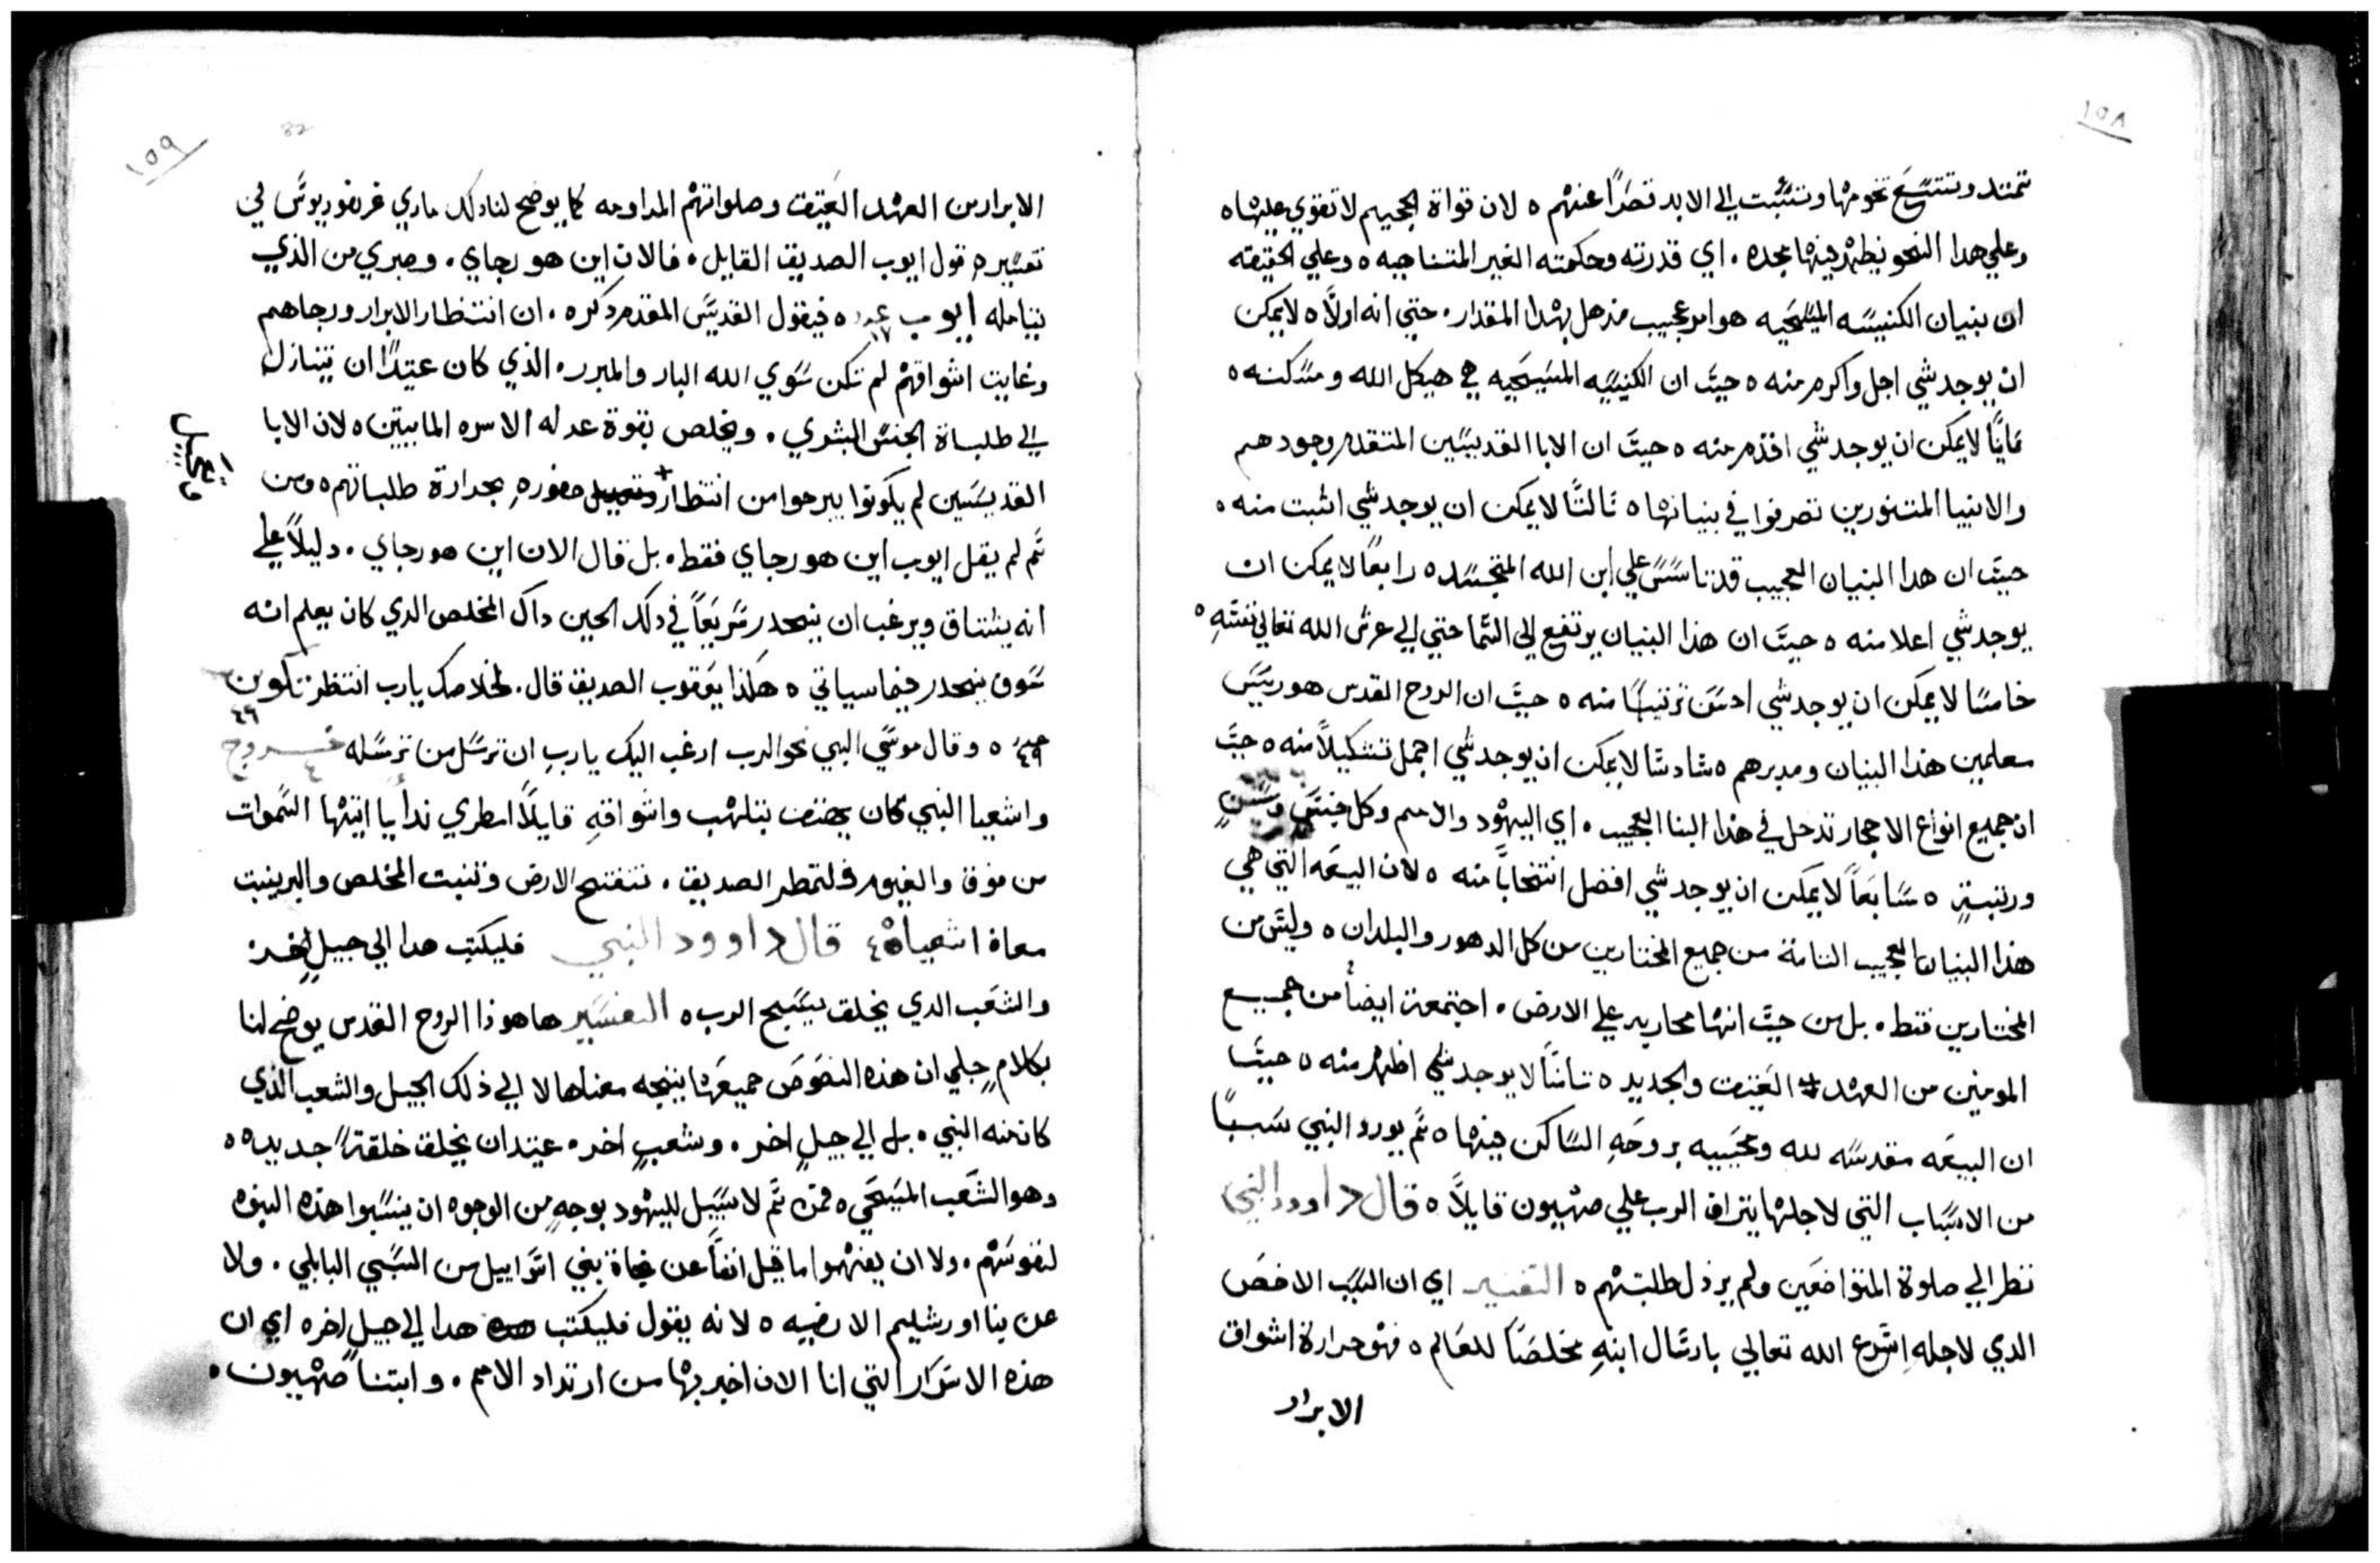 ١٥٨
تمتد وتتسَع تخومها وتتبت الي الابد قصرًا عنهم ٥ لان قواة الجحيم لا تقوي عليها ٥
وعلي هدا النحو يظهر فيها مجده ٠ اي قدرته وحكمته الغير المتناهيه ٥ وعلي الحقيقه
ان بنيان الكنيسَه المسَيحَيه هو امر عجيب مدهل بهدا المقدار ٠ حتي انه اولًا ٥ لا يمكن
ان يوجد شي اجل واكرم منه ٥ حيتَ ان الكنيسَه المسَيحَيه هي هيكل الله ومسَكنه ٥
تانيًا لا يمكن ان يوجد شي اقدم منه ٥ حيتَ ان الابا القديسَين المتقدم وجودهم
والانبيا المتنورين تصرفوا في بنيانها ٥ تالتًا لا يمكن ان يوجد شي اتبت منه ٥
حيتَ ان هدا البنيان العجيب قد تاسَسَ علي ابن الله المتجسَد ٥ رابعًا لا يمكن ان
يوجد شي اعلا منه ٥ حيتَ ان هذا البنيان يرتفع الي السَما حتي الي عرش الله تعالي نفسَهِ ٥
خامسًا لا يمكن ان يوجد شي احسَن ترتيبًا منه ٥ حيتَ ان الروح القدس هو رييسَ
معلمين هذا البنيان ومدبرهم ٥ سَادسًا لا يمكن ان يوجد شي اجمل تشكيلًا منه ٥ حيتَ
ان جميع انواع الاحجار تدخل في هذا البنا العجيب ٠ اي اليهود والامم وكل جنسَ وسَنٍ
ورتبةٍ ٥ سَابعًا لا يمكن ان يوجد شي افضل انتخابًا منه ٥ لان البيعَه التي هي
هذا البنيان العجيب التامة من جميع المختارين من كل الدهور والبلدان ٥ وليسَ من
المختارين فقط ٠ بل من حيتَ انها محاربه علي الارض ٠ اجتمعة ايضًا من جميع
المومنين من العهد العَتيق والجديد ٥ تامنًا لا يوجد شي اظهر منه ٥ حيتَ
ان البيعَه مقدسَه لله وعجَيبه بروحَهِ السَاكن فيها ٥ تَم يورد النبي سَببًا
من الاسَباب التي لاجلها يتراف الرب علي صهيون قايلًا ٥ قال داوود النبي
نظر الي صلوة المتواضعَين ولم يرذل طلبتهم ٥ التفسير اي ان السَبب الاخصَ
الذي لاجلهِ اسَرع الله تعالي بارسَال ابنهِ مخلصًا للعَالم ٥ فهو حرارة اشواق
الابرار
١٥٩
32
الابرار من العهد العَتيق وصلواتهم المداومه كما يوضح لنا دلك ماري غريغوريوسَ في
تفسَيرهِ قول ايوب الصديق القايل ٠ فالان اين هو رجاي ٠ وصبري من الذي
يتامله أيوب عدد ١٧ ٥ فيقول القديسَ المقدم دكره ٠ ان انتظار الابرار ورجاهم
وغايت اشواقهم لم تكن سَوي الله البار والمبرر ٥ الذي كان عتيدًا ان يتنازل
الي طلباة الجنسَ البشري ٠ ويخلص بقوة عدله الاسره المايتين ٥ لان الابا
القديسَين لم يكونوا يبرحوا من انتظار + حضورهِ بحرارة طلباتهم ٥ ومن
تَم لم يقل ايوب اين هو رجاي فقط ٠ بل قال الان اين هو رجاي ٠ دليلًا علي
انه يشتاق ويرغب ان ينحدر سَريعًا في دلك الحين داك المخلص الدي كان يعلم انه
سَوف ينحدر فيما سياتي ٥ هكذا يَعقوب الصديق قال ٠ لخلاصك يارب انتظر تكوين
٤٩ عدد ٥ وقال موسَي النبي نحو الرب ارغب اليك ياربِ ان ترسَل من ترسَله خروج ٤
واشعيا النبي كان يهتف بتلهب واشواقهِ قايلًا امطري نداًيا ايتها السَموات
من فوق والغيوم فلتمطر الصديق ٠ تتفتح الارض وتنبت المخلص والبر ينبت
معاة اشعياة ٤ قال داوود النبي فليكتب هدا الي جيلٍ اخر
والشعَب الدي يخلق يسَبح الرب ٥ التفسَير ها هو ذا الروح القدس يوضح لنا
بكلامٍ جلي ان هذه النصَوصَ جميعَها يتجه معناها لا الي ذلك الجيل والشعب الذي
كان منه النبي ٠ بل الي جيلٍ اخر ٠ وشعبٍ اخر ٠ عتيد ان يخلق خلقةً جديده ٥
وهو الشَعب المسَيحَي ٥ فمن تَم لا سَبيل لليهود بوجهٍ من الوجوه ان ينسَبوا هذه النبوه
لنفوسَهم ٠ ولا ان يفهموا ما قيل انفًا عن نجاة بني اسَراييل من السَبي البابلي ٠ ولا
عن بنا اورشليم الارضيه ٥ لانه يقول فليكتب هدا الي جيلٍ اخره اي ان
هذه الاسَرار التي انا الان اخبر بها من ارتداد الامم ٠ وابتنا صهيون ٠